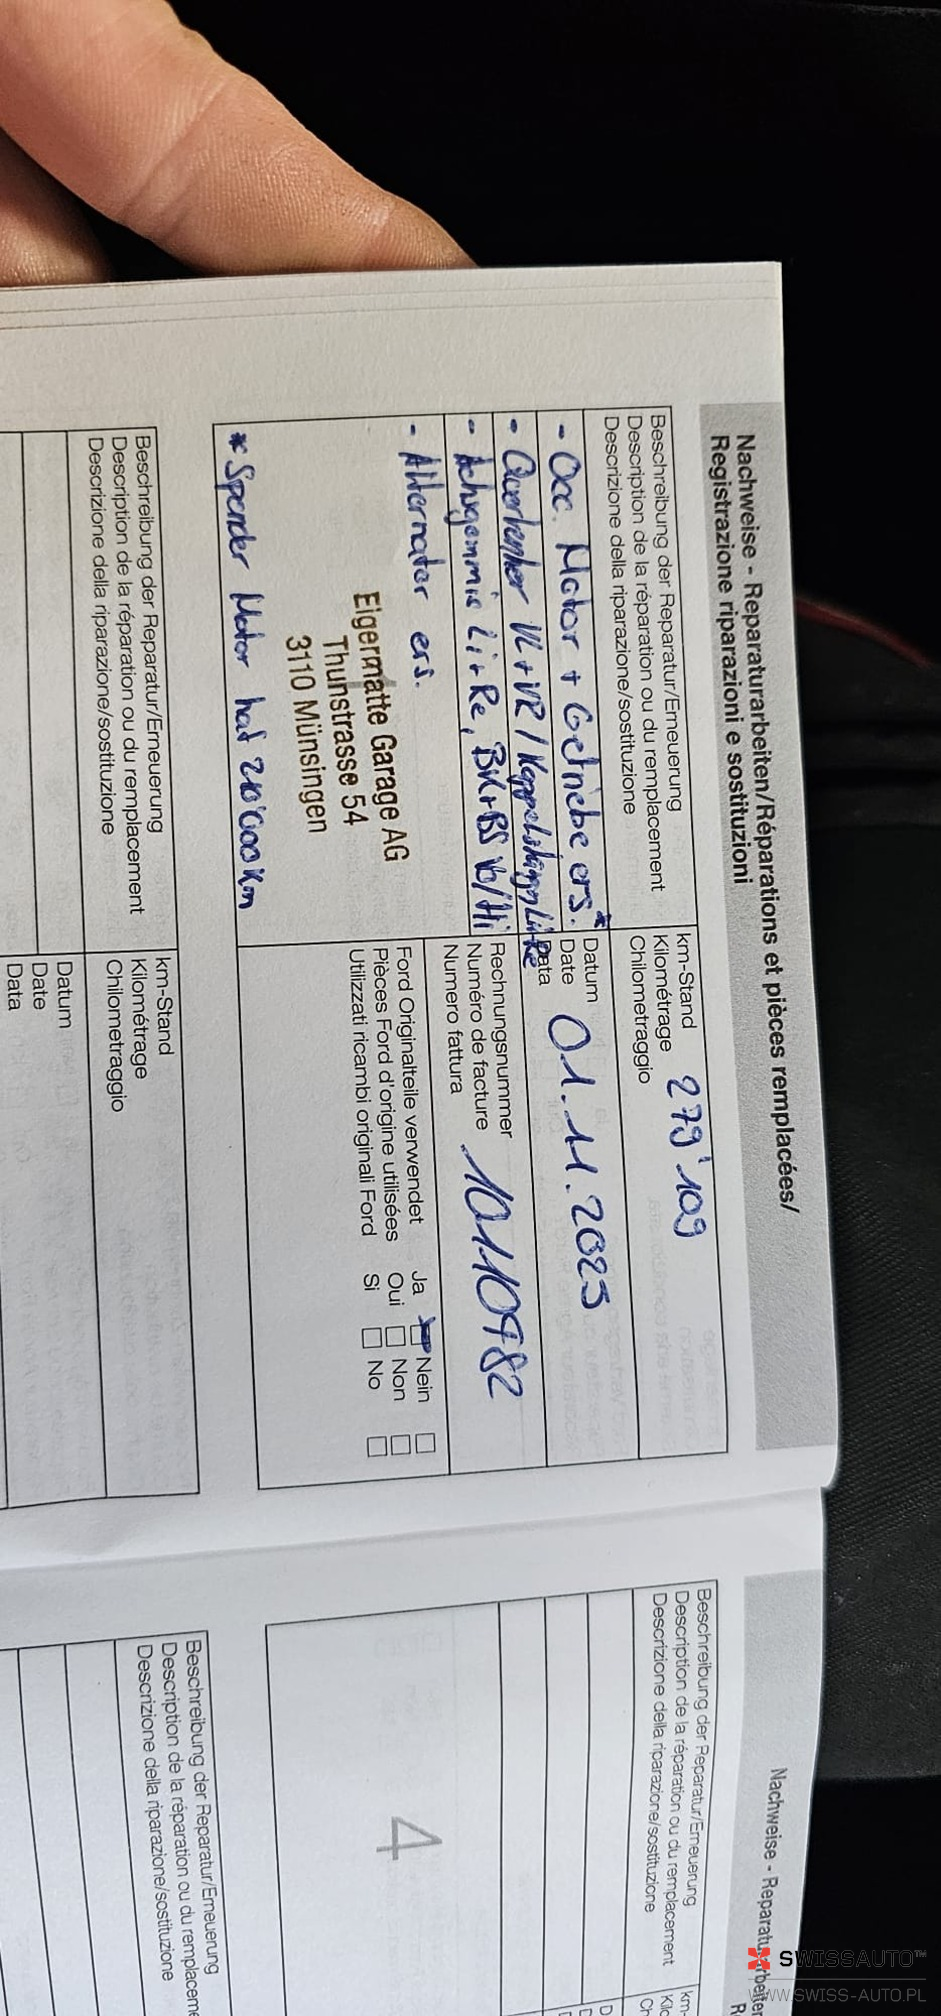 Nachweise - Reparaturarbeiten/Réparations et pièces remplacées/
Registrazione riparazioni e sostituzioni
Beschreibung der Reparatur/Erneuerung
Description de la réparation ou du remplacement
Descrizione della riparazione/sostituzione
km-Stand
Kilométrage 279'109
Chilometraggio
- Occ. Motor + Getriebe ers.*
- Querlenker VL+VR / Koppelstangen Li+Re
- Achsgummis Li+Re, BK+BS Vo/Hi
- Alternator ers.
Eigermatte Garage AG
Thunstrasse 54
3110 Münsingen
* Spender Motor hat 210'000 Km
Datum
Date 01.11.2023
Data
Rechnungsnummer
Numéro de facture 10110982
Numero fattura
Ford Originalteile verwendet Ja Nein
Pièces Ford d'origine utilisées Oui Non
Utilizzati ricambi originali Ford Si No
Beschreibung der Reparatur/Erneuerung
Description de la réparation ou du remplacement
Descrizione della riparazione/sostituzione
km-Stand
Kilométrage
Chilometraggio
Datum
Date
Data
Nachweise - Reparaturarbeiten
R
Beschreibung der Reparatur/Erneuerung
Description de la réparation ou du remplacement
Descrizione della riparazione/sostituzione
km-
Kilo
Ch
D
D
4
Beschreibung der Reparatur/Erneuerung
Description de la réparation ou du remplaceme
Descrizione della riparazione/sostituzione
SWISSAUTO™
WWW.SWISS-AUTO.PL